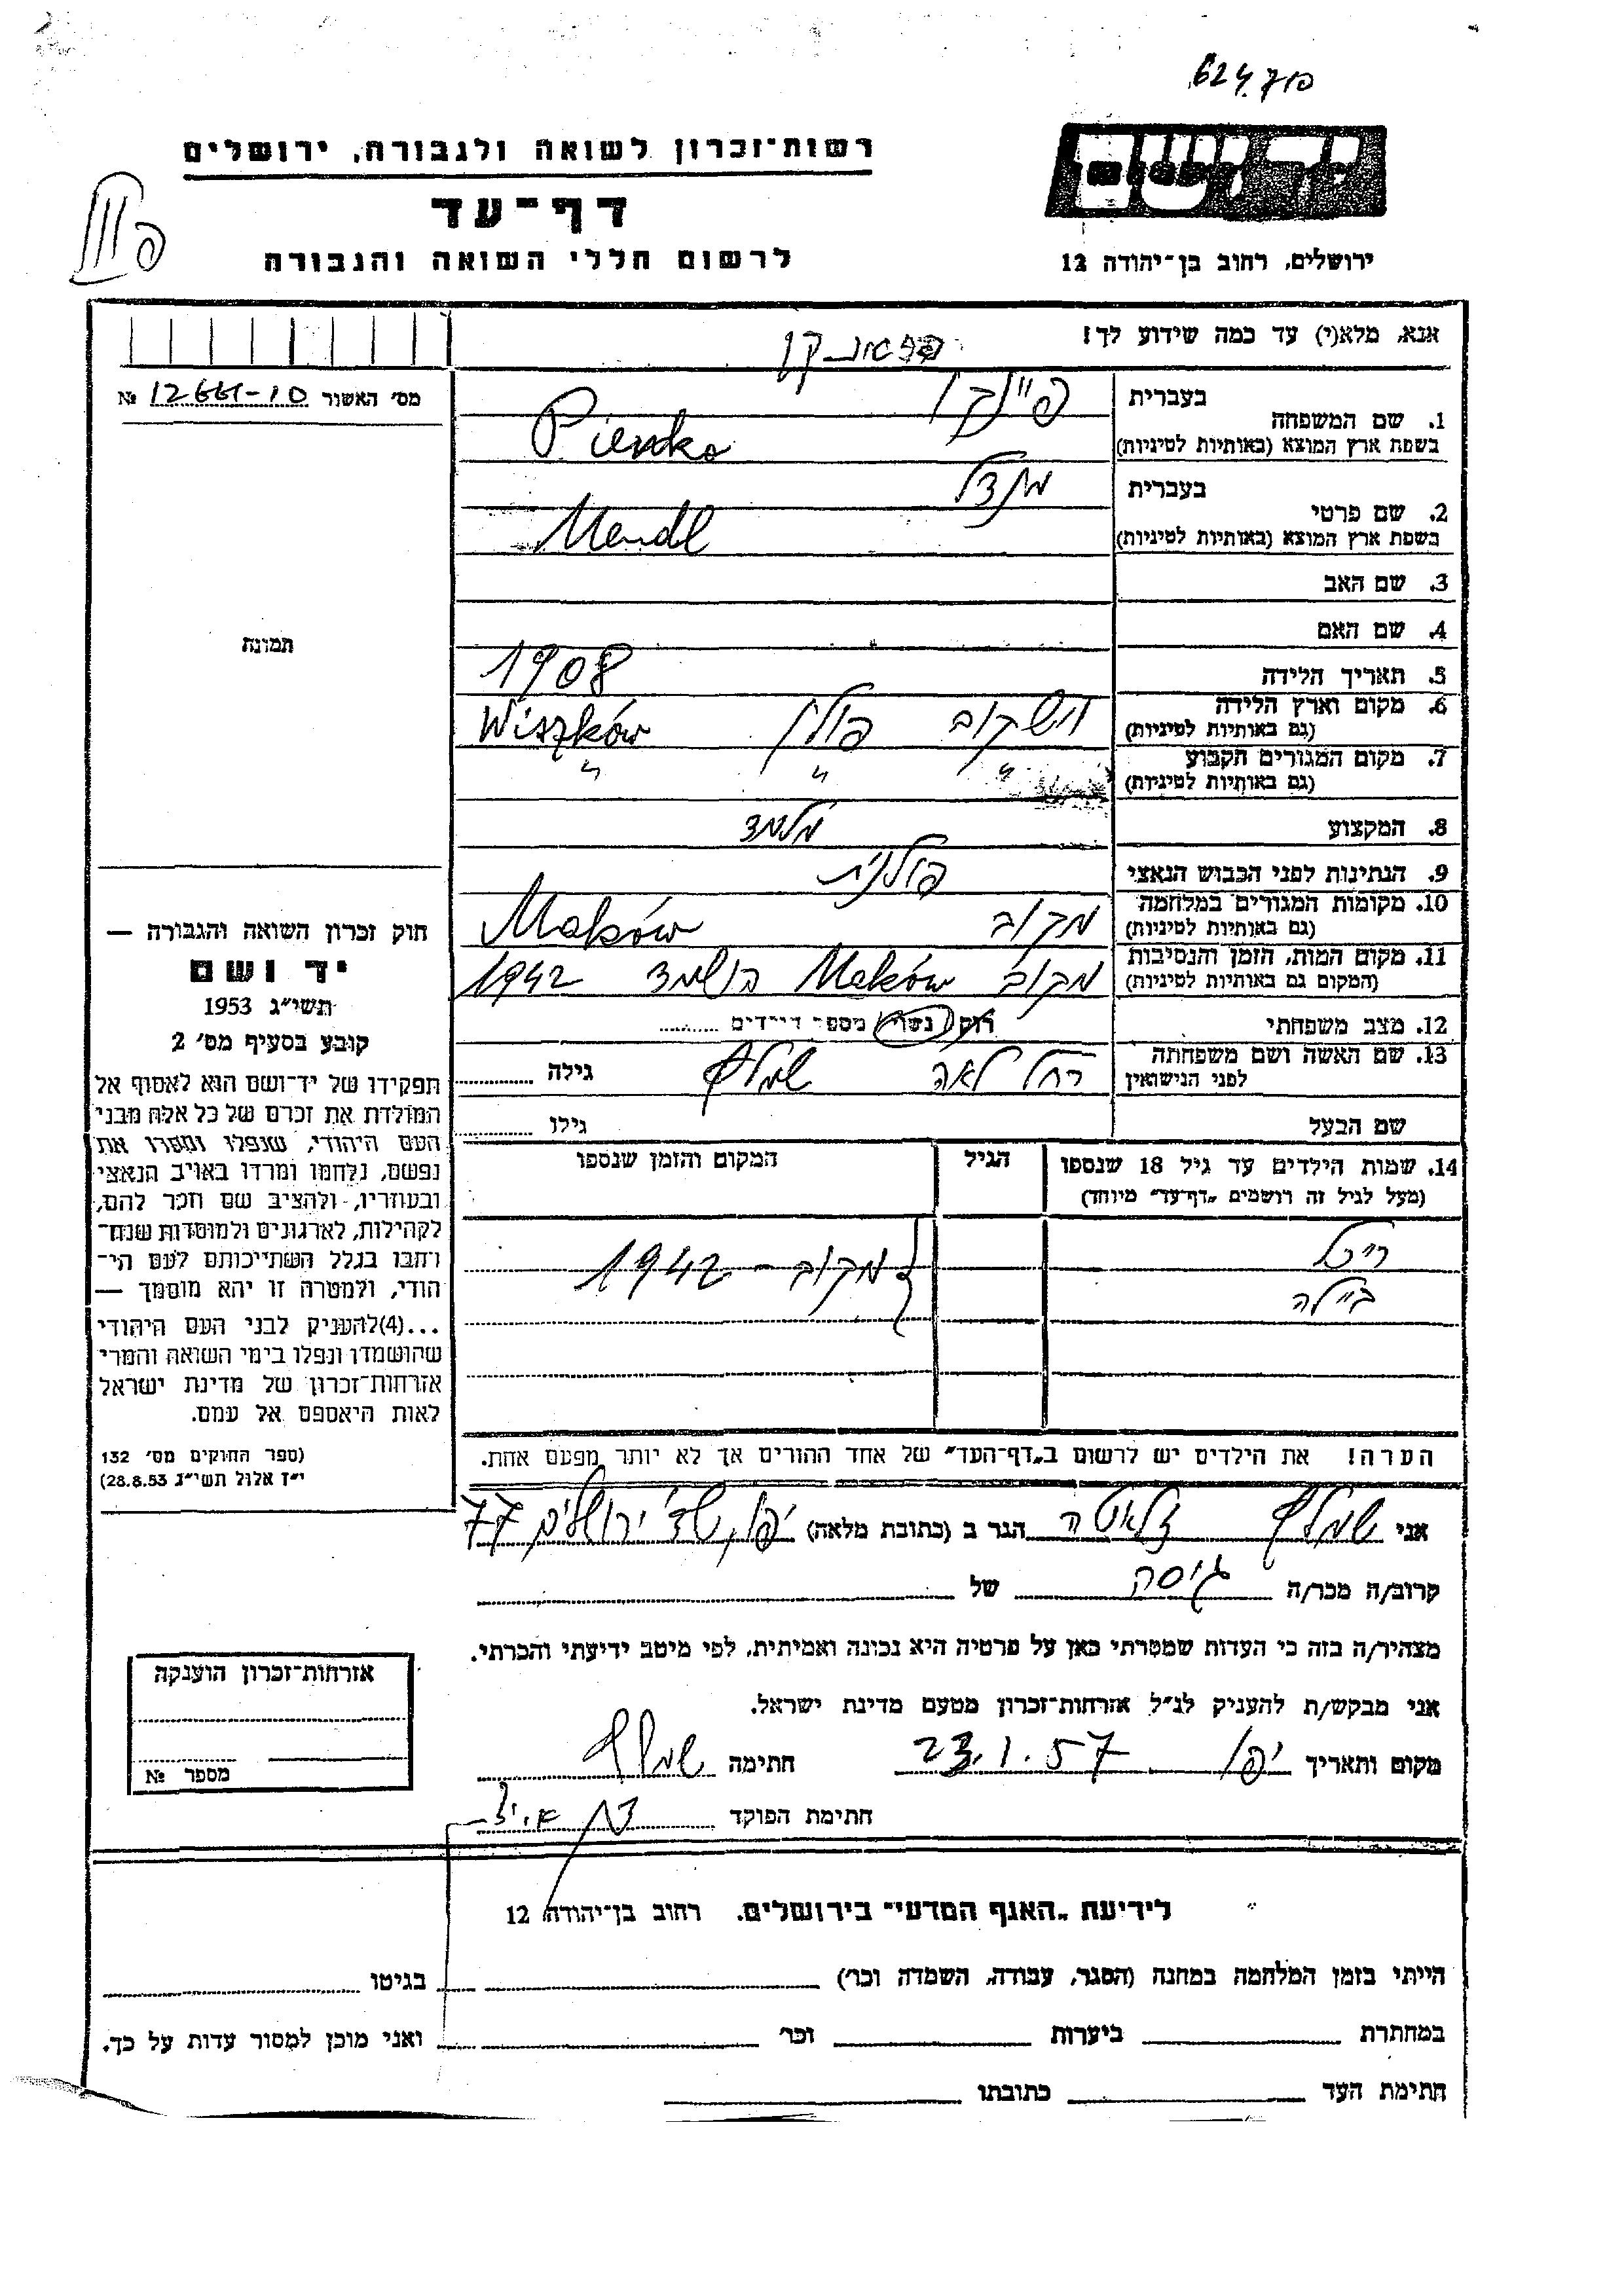 רשות־זכרון לשואה ולגבורה, ירושלים
דף־עד
לרשום חללי השואה והגבורה
יד ושם
ירושלים, רחוב בן־יהודה 12
אנא, מלא(י) עד כמה שידוע לך!
מס׳ האשור № 12661-10
1. שם המשפחה
בעברית
פיינקו
בשפת ארץ המוצא (באותיות לטיניות)
Pienko
2. שם פרטי
בעברית
מנדל
בשפת ארץ המוצא (באותיות לטיניות)
Mendl
3. שם האב
4. שם האם
5. תאריך הלידה 1908
6. מקום וארץ הלידה
(גם באותיות לטיניות)
וישקוב פולין Wiszków
7. מקום המגורים הקבוע
(גם באותיות לטיניות)
" " "
8. המקצוע מלמד
9. הנתינות לפני הכבוש הנאצי פולנית
10. מקומות המגורים במלחמה
(גם באותיות לטיניות)
מקוב Maków
11. מקום המות, הזמן והנסיבות
(המקום גם באותיות לטיניות)
מקוב Maków הושמד 1942
12. מצב משפחתי רוק נשוי מספר הילדים
13. שם האשה ושם משפחתה
לפני הנישואין
רחל לאה שמלף גילה
שם הבעל גילו
14. שמות הילדים עד גיל 18 שנספו
(מעל לגיל זה רושמים „דף־עד" מיוחד)
הגיל
המקום והזמן שנספו
רייכל
ביילה
מקוב - 1942
הערה! את הילדים יש לרשום ב„דף־העד" של אחד ההורים אך לא יותר מפעם אחת.
תמונה
חוק זכרון השואה והגבורה —
יד ושם
תשי״ג 1953
קובע בסעיף מס׳ 2
תפקידו של יד־ושם הוא לאסוף אל
המולדת את זכרם של כל אלה מבני
העם היהודי, שנפלו ומסרו את
נפשם, נלחמו ומרדו באויב הנאצי
ובעוזריו, ולהציב שם וזכר להם,
לקהילות, לארגונים ולמוסדות שנח־
רבו בגלל השתייכותם לעם הי־
הודי, ולמטרה זו יהא מוסמך —
...(4)להעניק לבני העם היהודי
שהושמדו ונפלו בימי השואה והמרי
אזרחות־זכרון של מדינת ישראל
לאות היאספם אל עמם.
(ספר החוקים מס׳ 132
י״ז אלול תשי״ג 28.8.53)
אני שמלף זלאטה הגר ב (כתובת מלאה) יפו, שד׳ ירושלים 77
קרוב/ה מכר/ה גיסה של
מצהיר/ה בזה כי העדות שמסרתי כאן על פרטיה היא נכונה ואמיתית, לפי מיטב ידיעתי והכרתי.
אני מבקש/ת להעניק לנ״ל אזרחות־זכרון מטעם מדינת ישראל.
מקום ותאריך יפו 23.1.57 חתימה שמלף
חתימת הפוקד
אזרחות־זכרון הוענקה
מספר №
לידיעת „האגף המדעי" בירושלים. רחוב בן־יהודה 12
הייתי בזמן המלחמה במחנה (הסגר, עבודה, השמדה וכו׳) בגיטו
במחתרת ביערות וכו׳ ואני מוכן למסור עדות על כך.
חתימת העד כתובתו